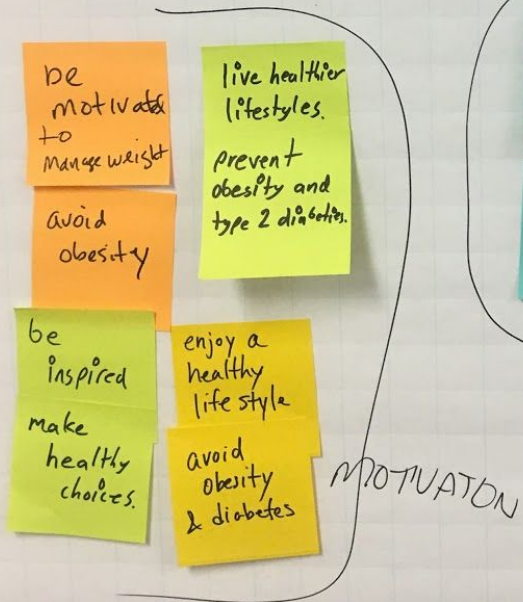 be
motivated
to
manage weight
avoid
obesity
live healthier
lifestyles.
prevent
obesity and
type 2 diabeties.
be
inspired
make
healthy
choices.
enjoy a
healthy
life style
avoid
obesity
& diabetes
MOTIVATON